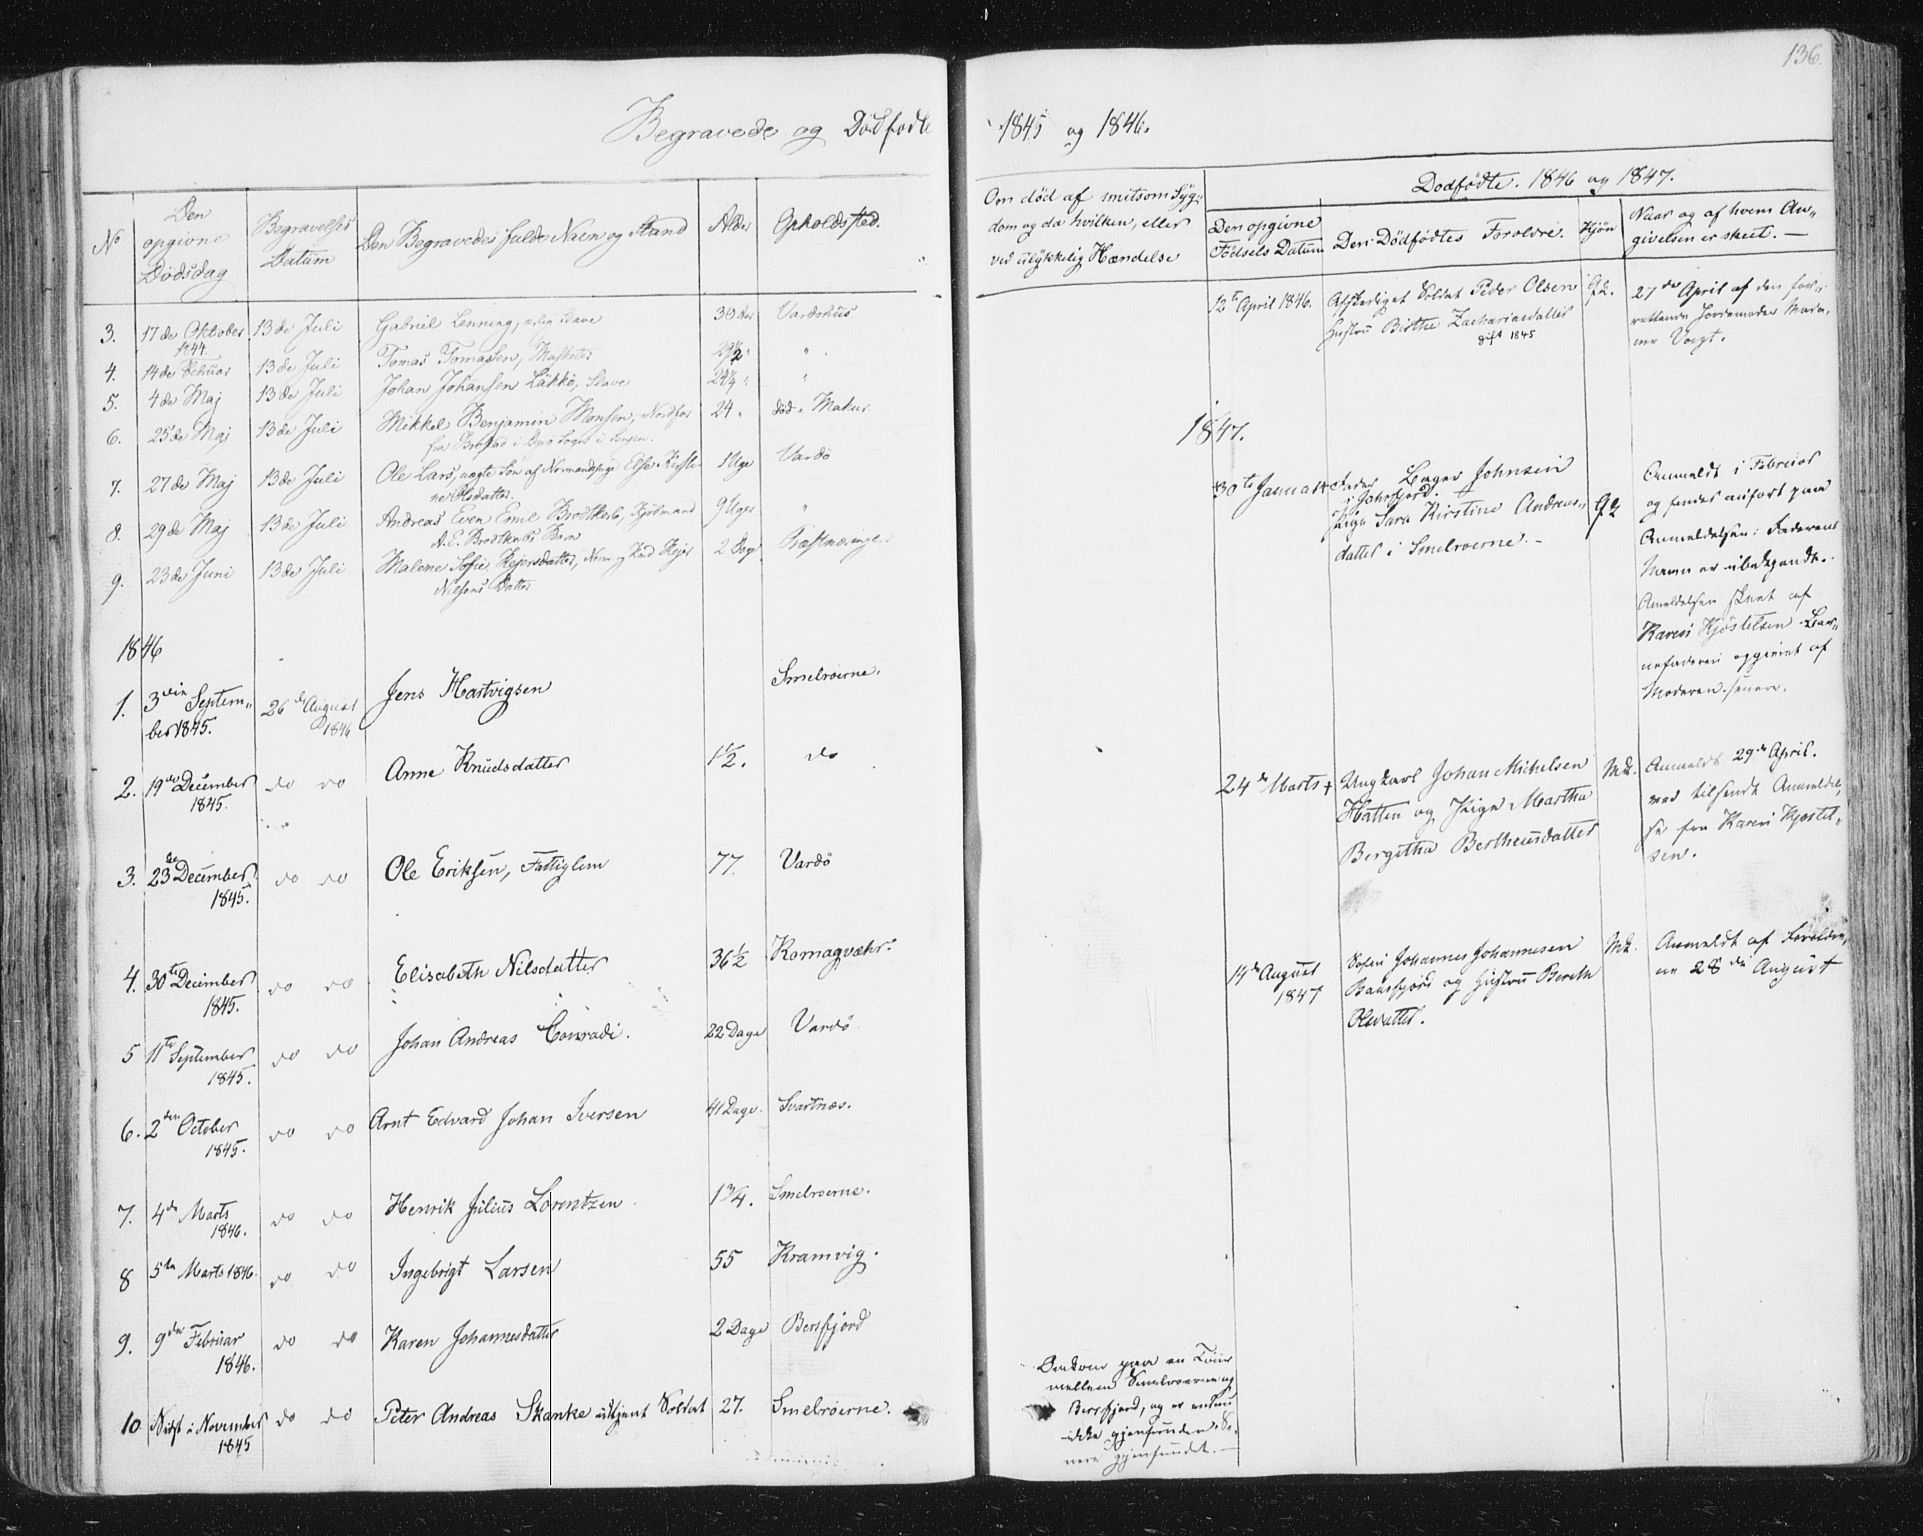 136.
Begravede og Dödfödte 1845 og 1846.
No
Den opgivne Dödsdag
Begravelses Datum
Den Begravedes fulde Navn og Stand
Alder
Opholdsted.
Om död af smitsom Syg-
dom og da hvilken, eller
ved ulykkelig Hændelse
3. 17de Oktober 1844. 13de Juli Gabriel Lenning, Slave 30 Vardöhus
4. 14de Februar 13de Juli Tomas Tomassen, 29½ "
5. 4de Maj 13de Juli Johan Johansen Läkkö, Slave 24¼ "
6. 25de Maj 13de Juli Mikkel Benjamin Monsen, Nordfar 24 död i Makur
7. 27de Maj 13de Juli Ole Lars, uægte Sön af Else Kirsti-
ne Olsdatter. 1 Uge Vardö
8. 29de Maj 13de Juli Andreas Even Emil Brodtkorb, Kjöbmand
A. E. Brodtkorbs Barn 9 Uger "
9. 23de Juni 13de Juli Malene Sofie Rejersdatter, Rejer
Nilsens Datter 2 Dage
1846
1. 3die Septem-
ber 1845. 26de August 1846 Jens Hartvigsen Smelroerne.
2. 19de December 1845. do do Anne Knudsdatter 1½. do
3. 23de December 1845. do do Ole Eriksen, Fattiglem 77. Vardö
4. 30te December 1845. do do Elisabeth Nilsdatter 36½ Komagvæhr.
5 11te September 1845. do do Johan Andreas Conradi. 22 Dage Vardö
6. 2den October 1845. do do Arnt Edvard Johan Iversen 41 Dage. Svartnæs.
7. 4de Marts 1846. do do Henrik Julius Lorentzen 1¾. Smelroerne.
8 5te Marts 1846. do do Ingebrigt Larsen 55 Kramvig.
9. 9de Februar 1846. do do Karen Johannesdatter 2 Dage Bersfjord
10 Nidst i November 1845 do do Peter Andreas Skanke udtjent Soldat 27. Smelroerne.
Omkom paa en Tour
mellem Smelroerne og
Bersfjord, og er endnu
ikke gjenfunden. Se-
nere gjenfundet.
Dodfödte. 1846 og 1847.
Den opgivne Födsels Datum
Den Dödfödtes Forældre.
Kjön
Naar og af hvem An-
givelsen er skeet.
12te April 1846. Afskediget Soldat Peder Olsen
Hustru Birthe Zachariasdatter
gift 1845
Qk.
27de April af den for-
rettende Jordemoder Mada-
me Voigt.
1847.
30te Januar Fader Lager Johnsen
i Jakofjord.
Pige Sara Kirstine Andreas-
datter i Smelroerne.
Qk
Anmeldt i Februar
og fandtes anfört paa
Anmeldelsen: Faderens
Navn er ubekjendt.
Anmeldelsen skeet af
Karen Kjöstelsen. Bar-
nefaderen opgivet af
Moderen senere.
24de Marts Ungkarl Johan Michelsen
Hatten og Pige Martha
Bergitha Bertheusdatter
Mk.
Anmeldt 29de April.
ved tilsendt Anmeldel-
se fra Karen Kjöstel-
sen.
14de August 1847 Johannes Johannesen
Baasfjord og Hustru Bereth
Olsdatter.
Mk.
Anmeldt af Forældre-
ne 28de August